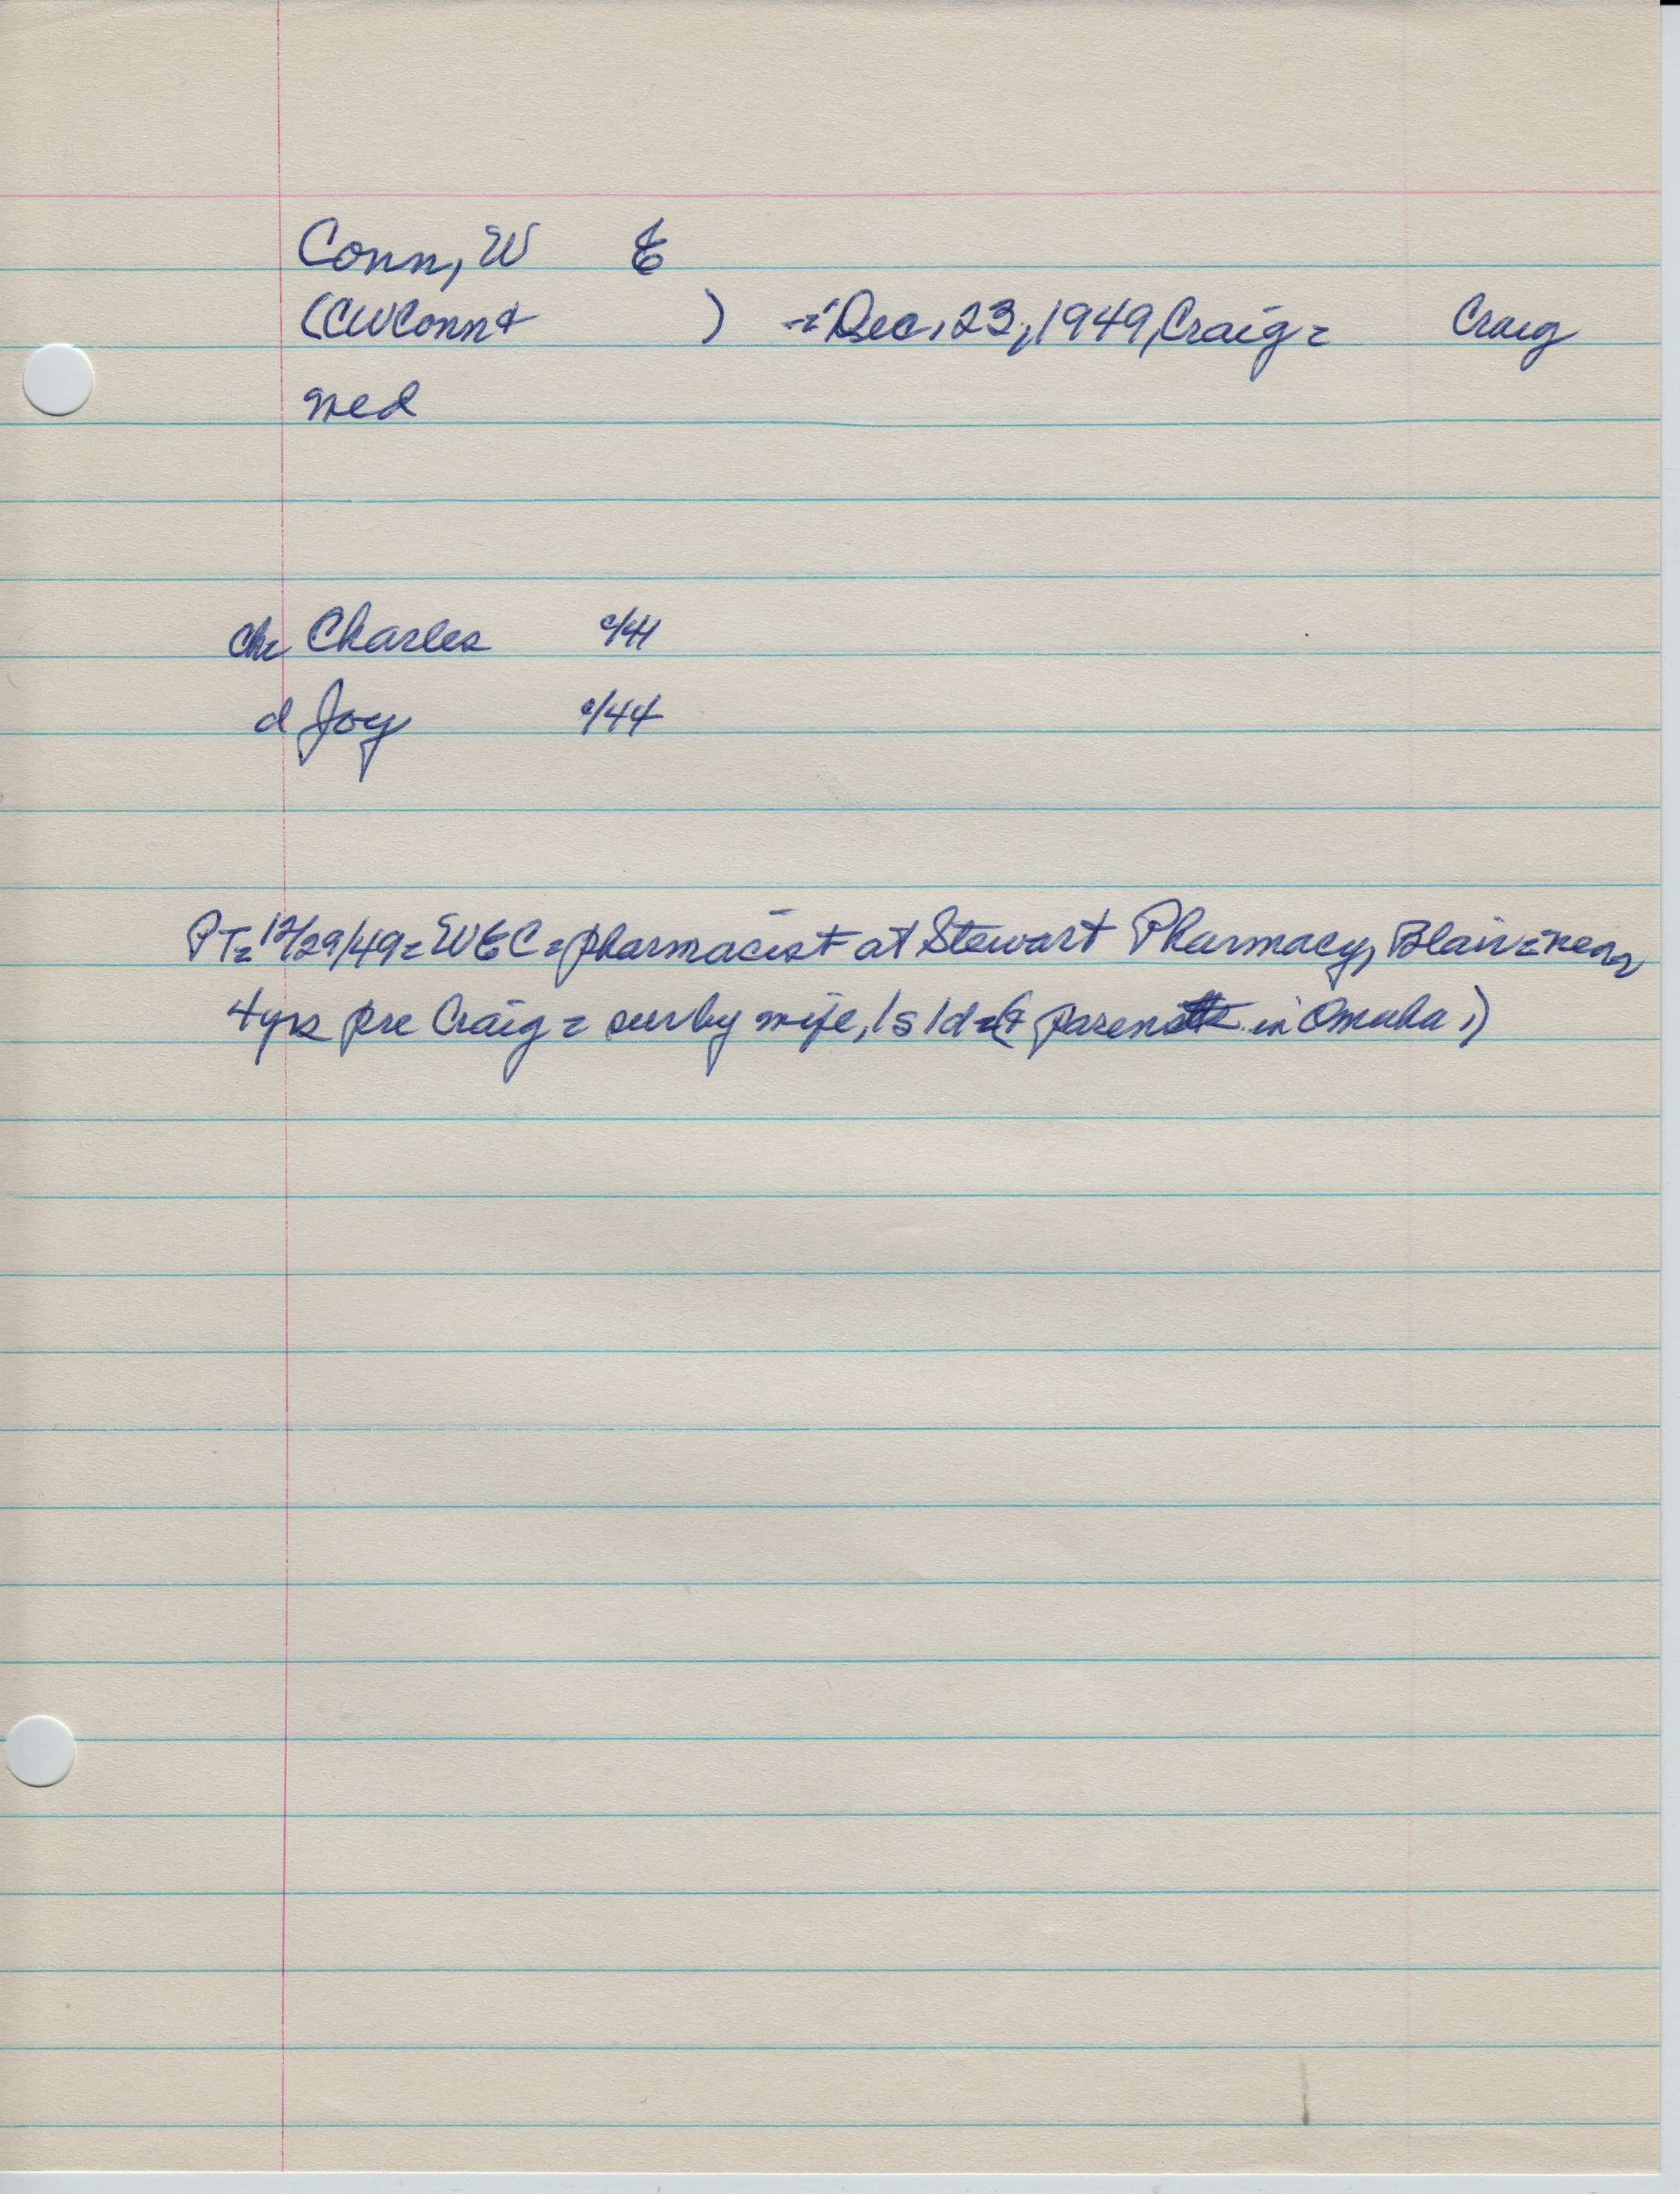 Conn, W E
(CWConn & ) -Dec. 23, 1949, Craig = Craig
med
ch Charles c/41
d Joy c/44
PT=12/29/49=WEC=pharmacist at Stewart Pharmacy, Blair=near
4yrs pre Craig = sur by wife, 1s 1d=(& parents in Omaha.)